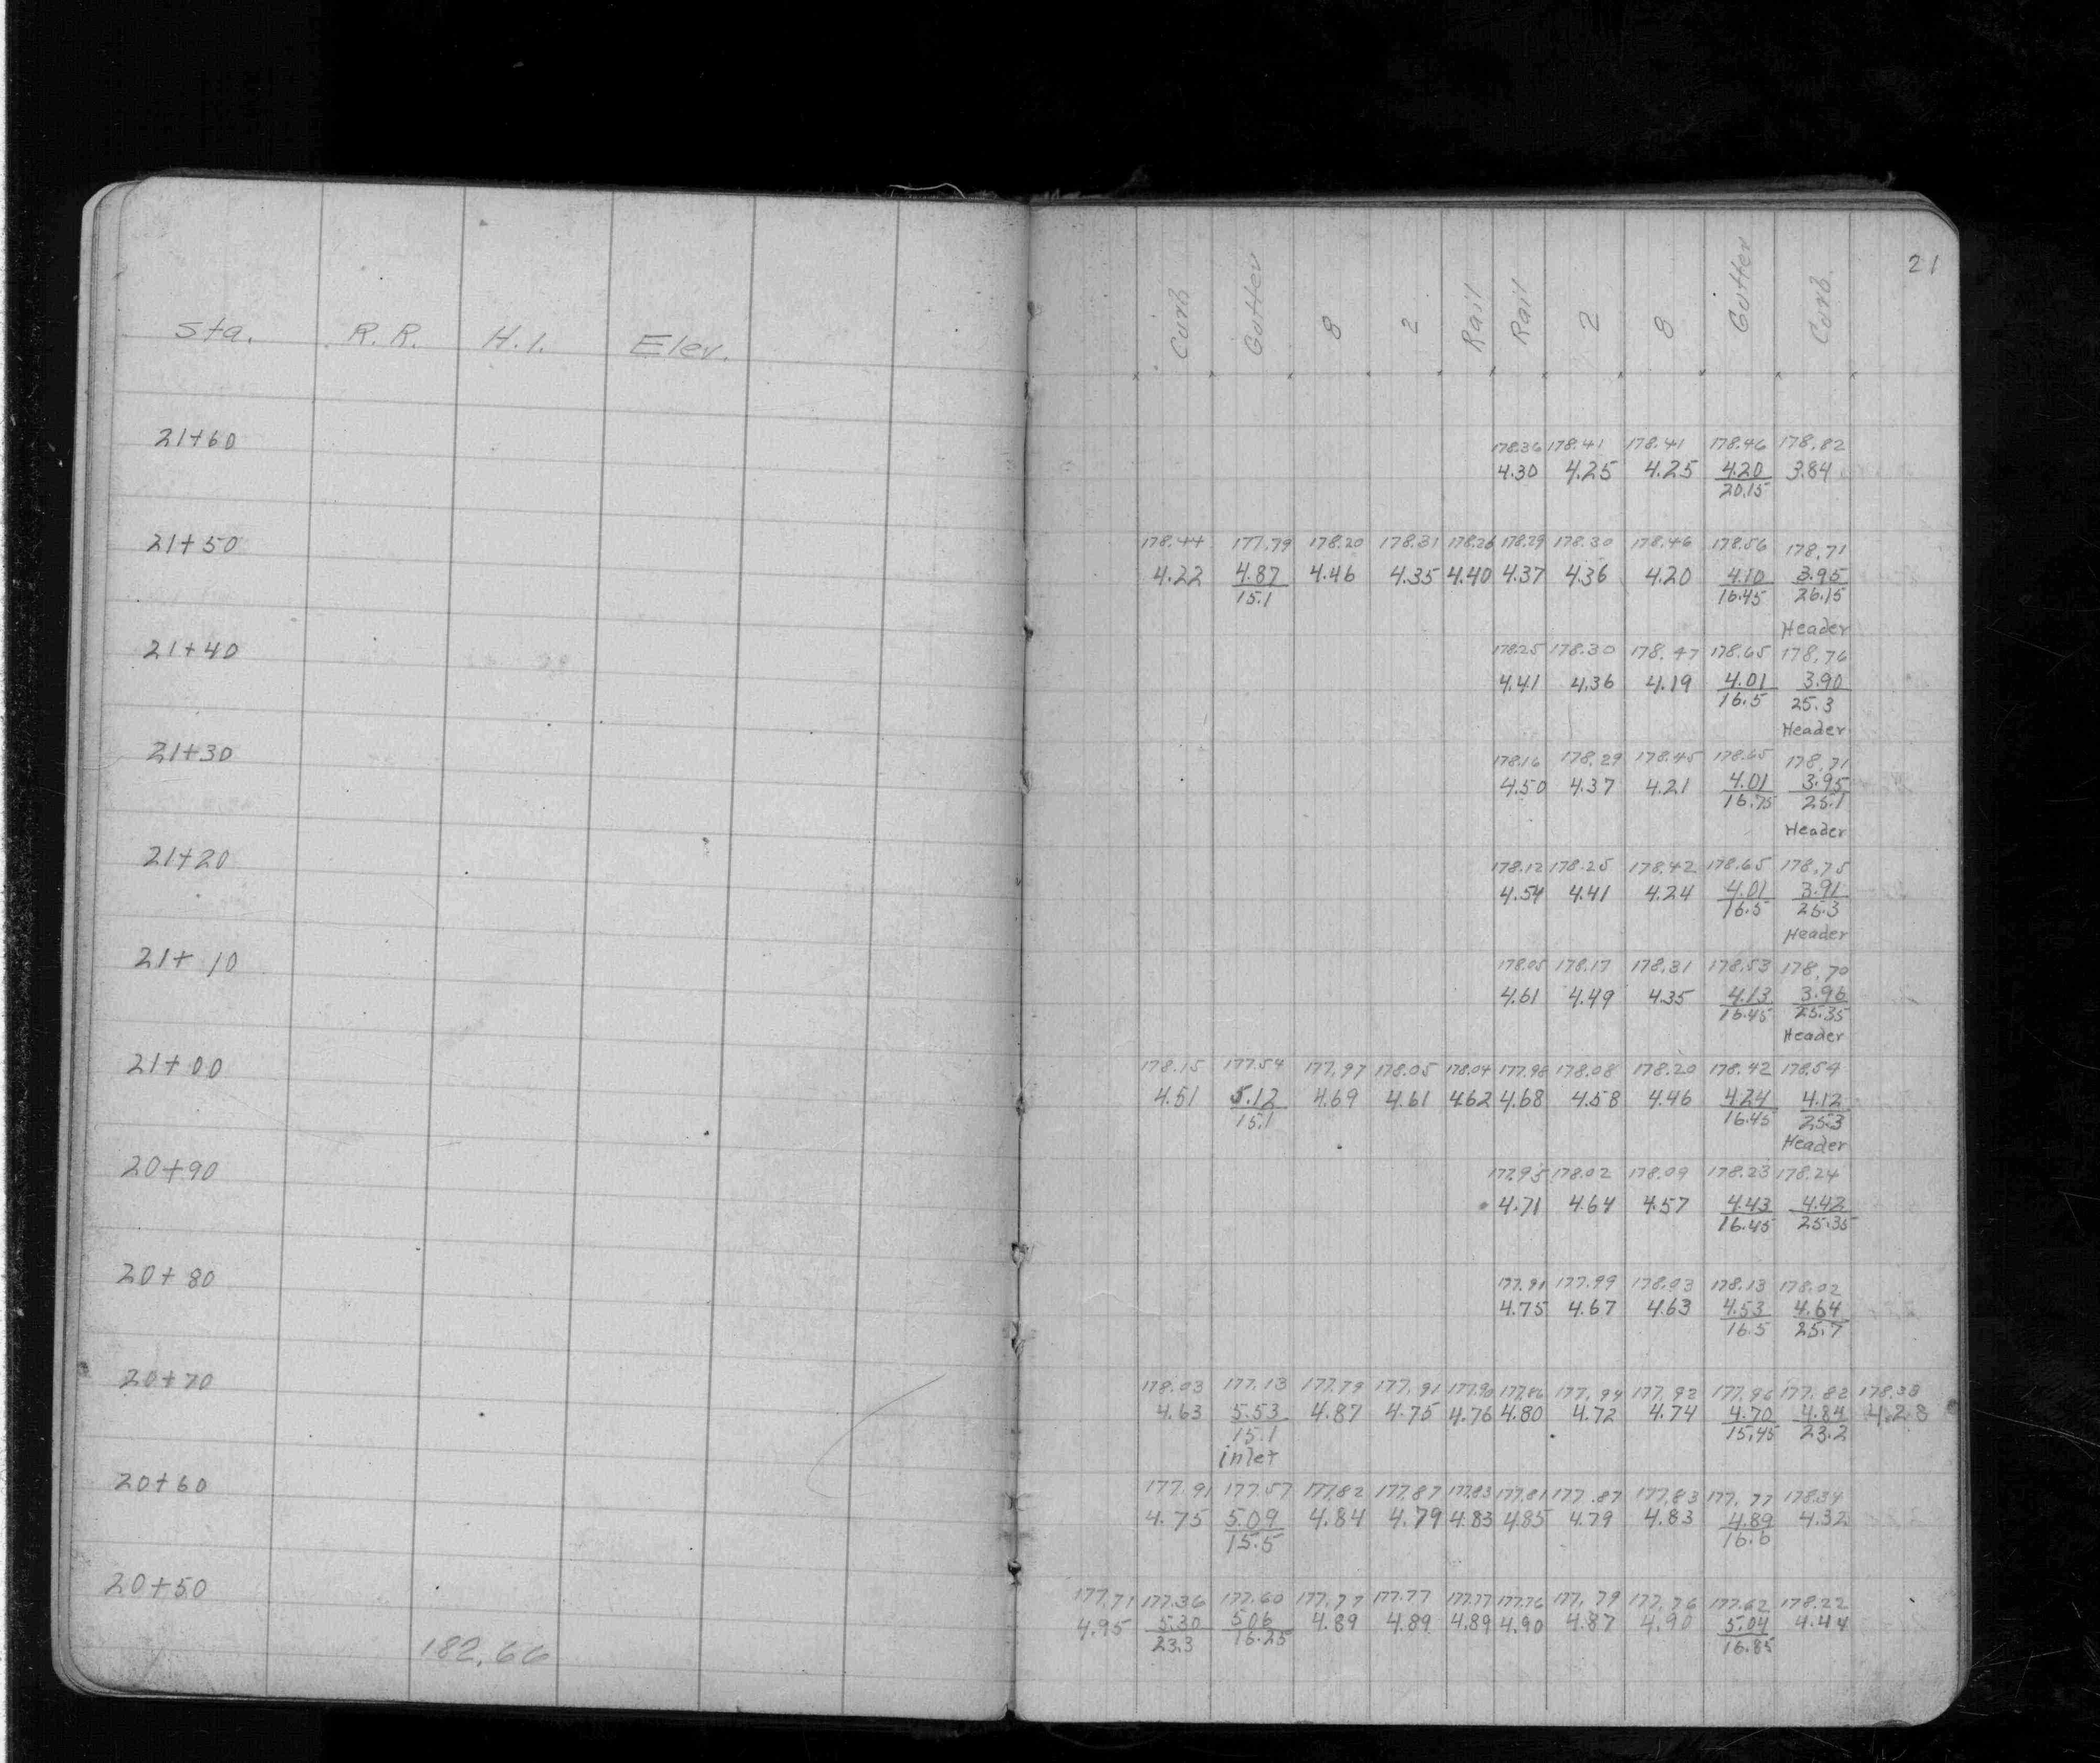 21
Sta. R.R. H.I. Elev. Curb Gutter 8 2 Rail Rail 2 8 Gutter Curb
21+60 178.36 178.41 178.41 178.46 178.82
4.30 4.25 4.25 4.20 3.84
20.15
21+50 178.44 177.79 178.20 178.31 178.26 178.29 178.30 178.46 178.56 178.71
4.22 4.87 4.46 4.35 4.40 4.37 4.36 4.20 4.10 3.95
15.1 16.45 26.15
Header
21+40 178.25 178.30 178.47 178.65 178.76
4.41 4.36 4.19 4.01 3.90
16.5 25.3
Header
21+30 178.16 178.29 178.45 178.65 178.71
4.50 4.37 4.21 4.01 3.95
16.75 25.1
Header
21+20 178.12 178.25 178.42 178.65 178.75
4.54 4.41 4.24 4.01 3.91
16.5 25.3
Header
21+10 178.05 178.17 178.31 178.53 178.70
4.61 4.49 4.35 4.13 3.96
16.45 25.35
Header
21+00 178.15 177.54 177.97 178.05 178.04 177.98 178.08 178.20 178.42 178.54
4.51 5.12 4.69 4.61 4.62 4.68 4.58 4.46 4.24 4.12
15.1 16.45 25.3
Header
20+90 177.95 178.02 178.09 178.23 178.24
4.71 4.64 4.57 4.43 4.42
16.45 25.35
20+80 177.91 177.99 178.03 178.13 178.02
4.75 4.67 4.63 4.53 4.64
16.5 25.7
20+70 178.03 177.13 177.79 177.91 177.90 177.86 177.94 177.92 177.96 177.82 178.38
4.63 5.53 4.87 4.75 4.76 4.80 4.72 4.74 4.70 4.84 4.28
15.1 15.45 23.2
inlet
20+60 177.91 177.57 177.82 177.87 177.83 177.81 177.87 177.83 177.77 178.34
4.75 5.09 4.84 4.79 4.83 4.85 4.79 4.83 4.89 4.32
15.5 16.6
20+50 177.71 177.36 177.60 177.77 177.77 177.77 177.76 177.79 177.76 177.62 178.22
4.95 5.30 5.06 4.89 4.89 4.89 4.90 4.87 4.90 5.04 4.44
23.3 16.25 16.85
182.66